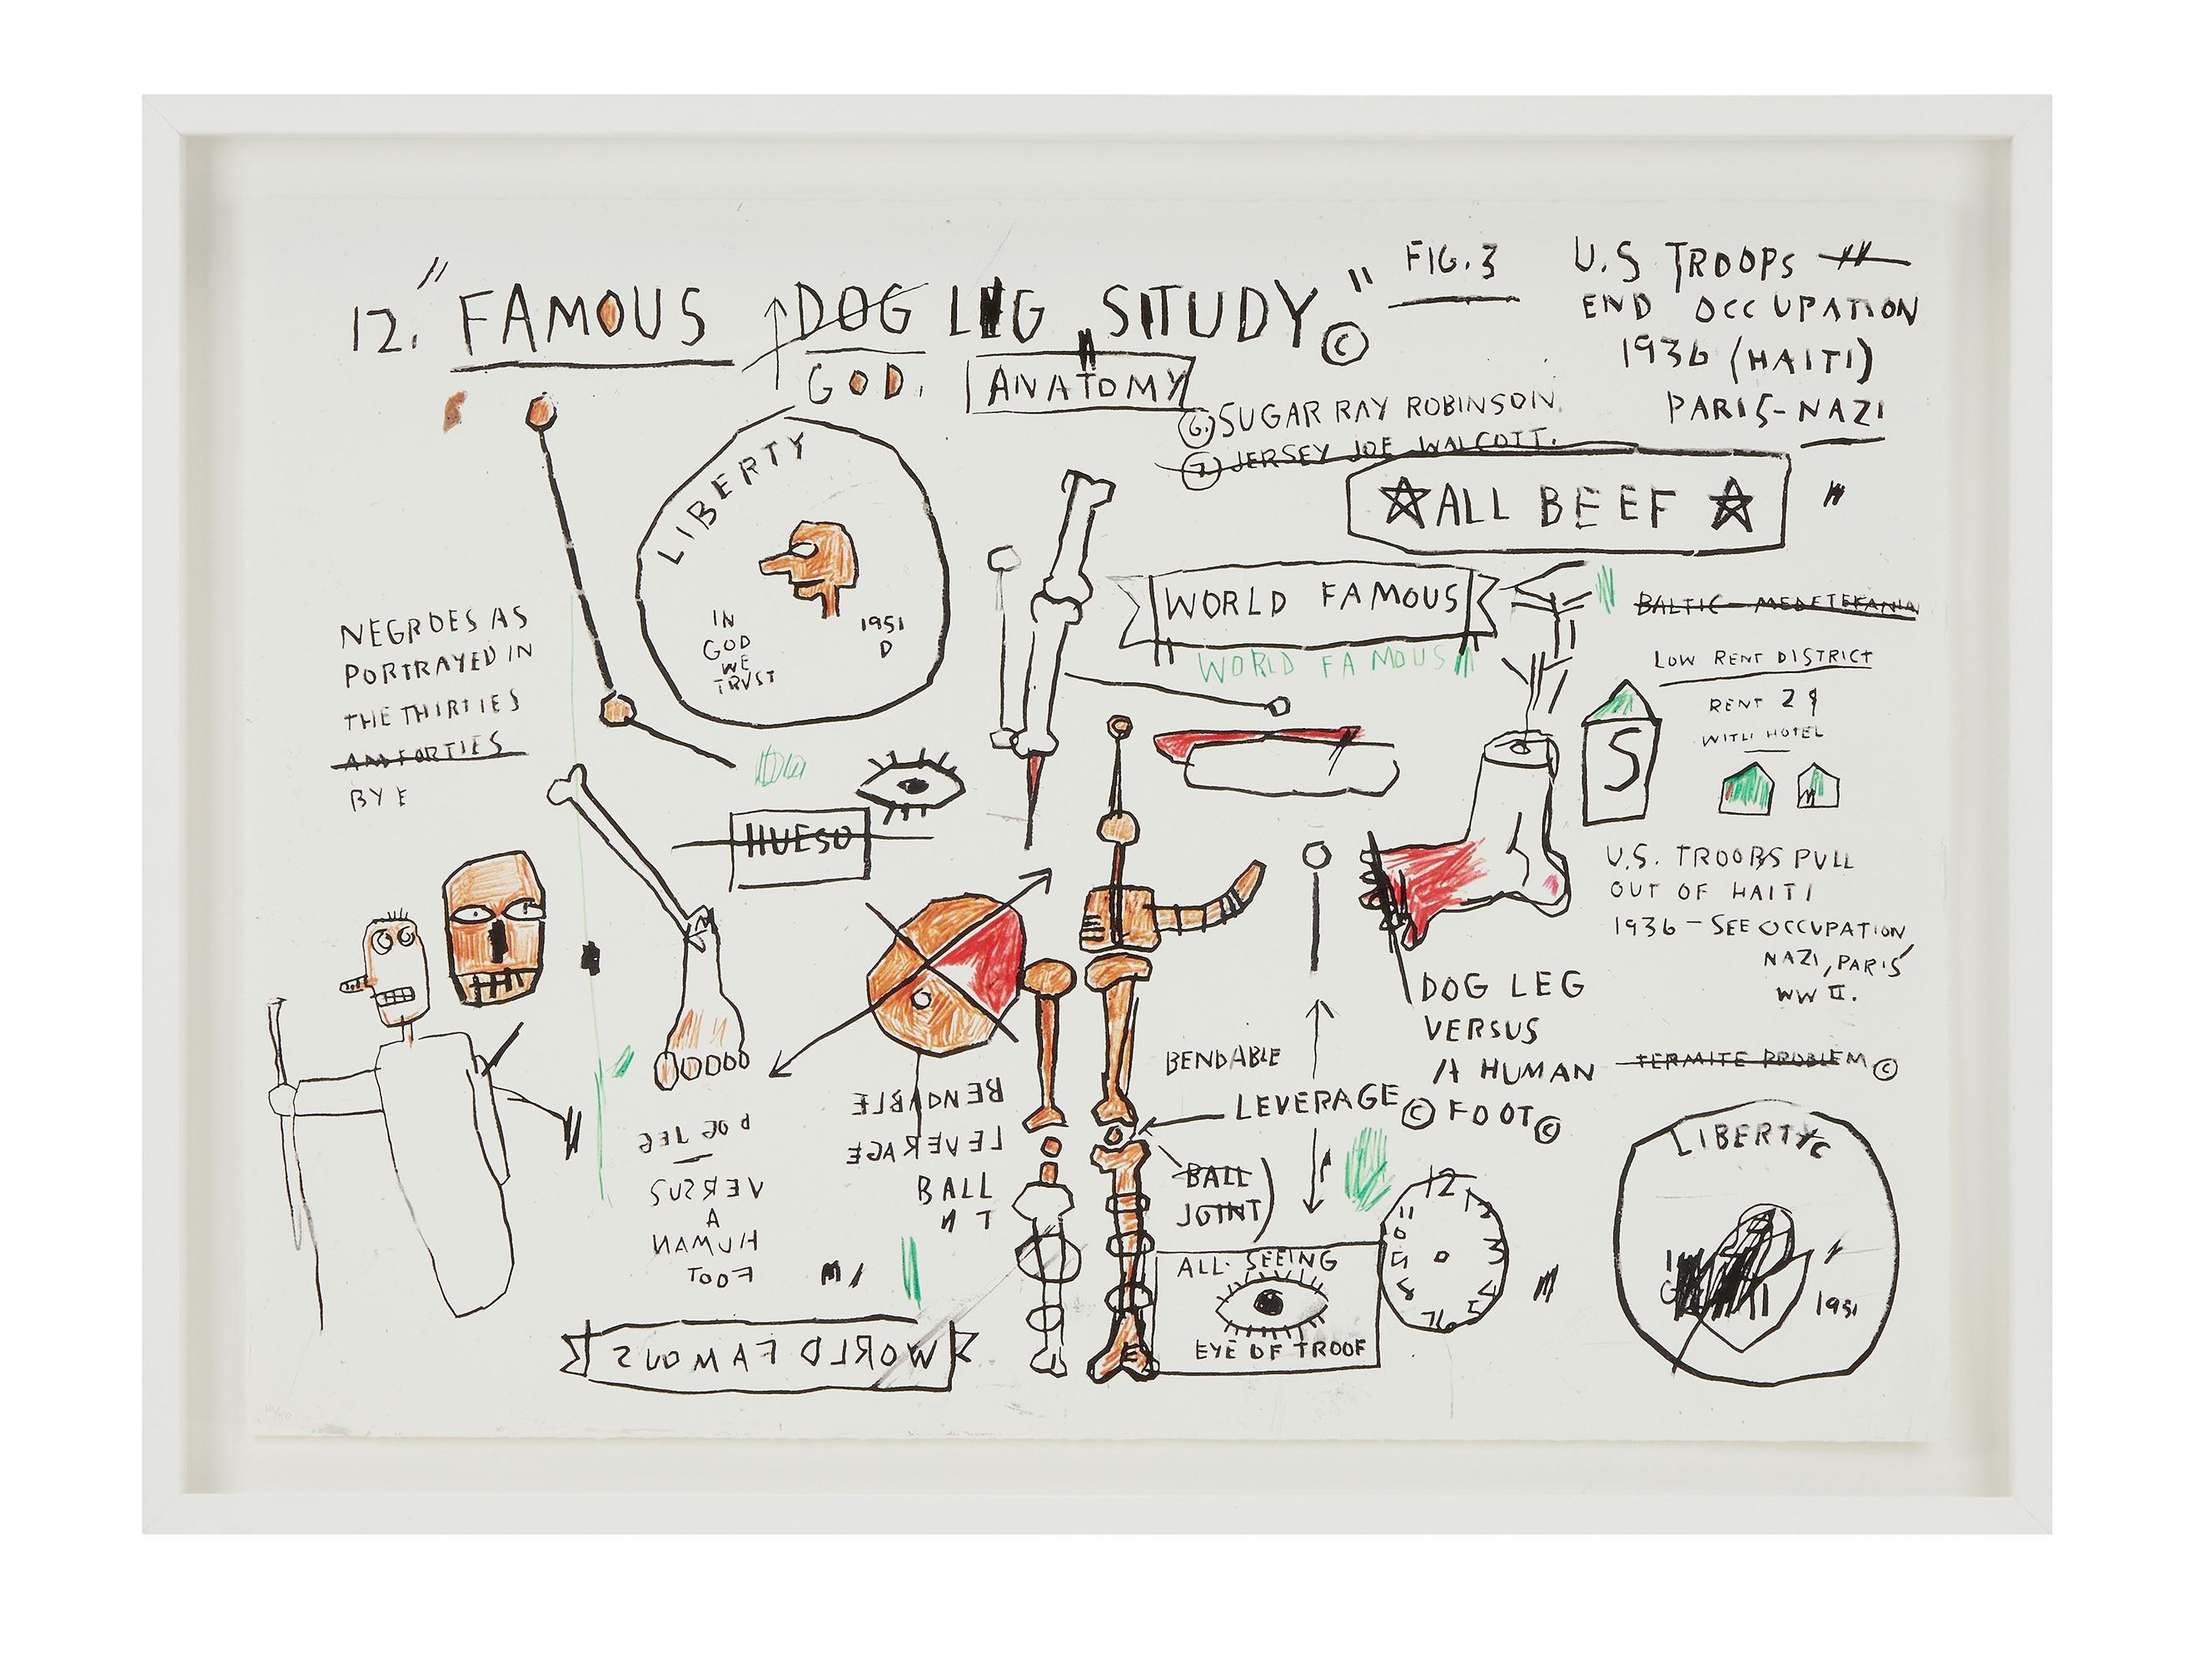 12. "FAMOUS DOG LEG STUDY ©"
GOD.
ANATOMY
FIG. 3
U.S TROOPS
END OCCUPATION
1936 (HAITI)
PARIS-NAZI
6. SUGAR RAY ROBINSON.
7. JERSEY JOE WALCOTT.
ALL BEEF
LIBERTY
IN
GOD
WE
TRUST
1951
D
WORLD FAMOUS
WORLD FAMOUS
BALTIC - MEDETERANIA
LOW RENT DISTRICT
RENT 2 $
WITH HOTEL
S
NEGROES AS
PORTRAYED IN
THE THIRTIES
AND FORTIES
BY E
HUESO
U.S. TROOPS PULL
OUT OF HAITI
1936 - SEE OCCUPATION
NAZI, PARIS
WW II.
DOG LEG
VERSUS
A HUMAN
FOOT ©
TERMITE PROBLEM ©
BENDABLE
LEVERAGE ©
BALL
JOINT)
BENDABLE
LEVERAGE
BALL
N T
DOG LEG
VERSUS
A
HUMAN
FOOT
WORLD FAMOUS
ALL SEEING
EYE OF TROOF
12
11
LIBERTY ©
1951